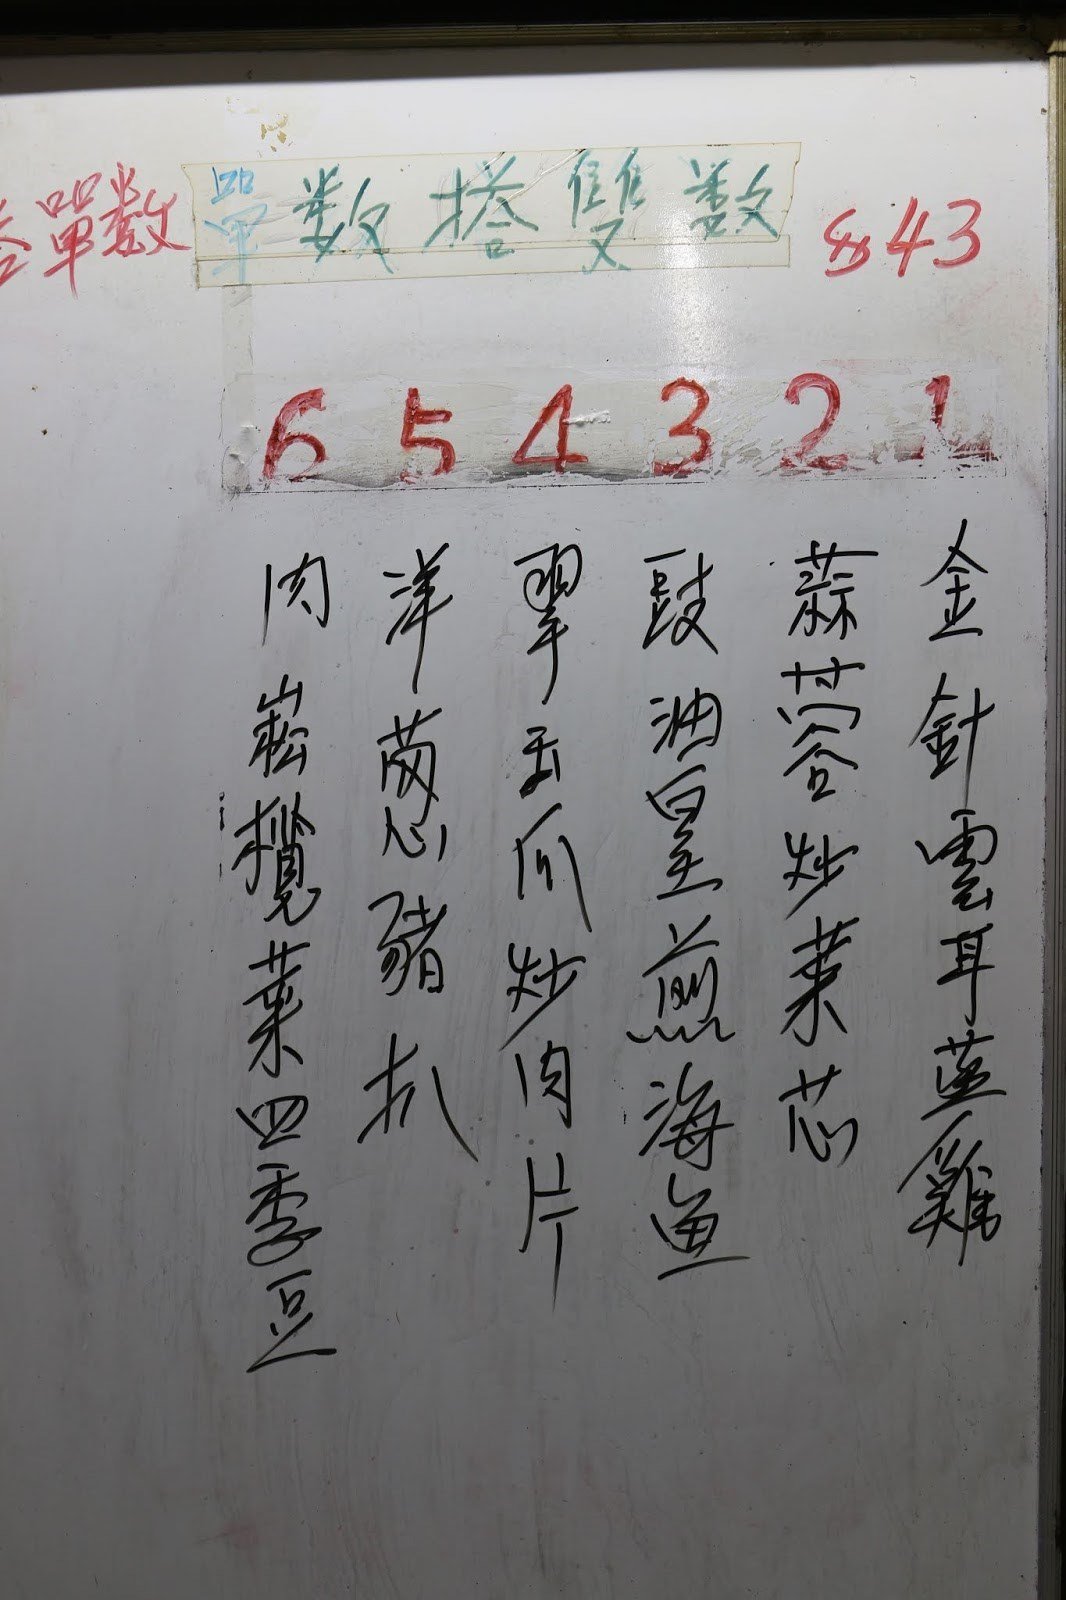 單數搭雙數
$43
單數
1 2 3 4 5 6
金針雲耳蒸雞
蒜蓉炒菜芯
豉油皇煎海魚
翠玉瓜炒肉片
洋葱豬扒
肉崧欖菜四季豆